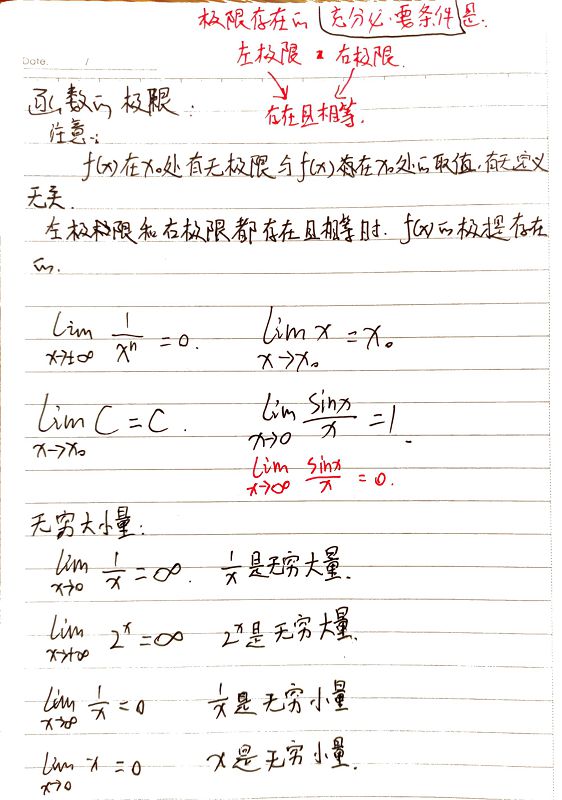 极限存在的充分必要条件是:
左极限 右极限.
存在且相等.
Date. /
函数的极限:
注意:
f(x)在x₀处有无极限与f(x)在x₀处的取值,有无定义
无关.
左极限和右极限都存在且相等时. f(x)的极限存在
的.
lim x→+∞ 1/xⁿ = 0. lim x→x₀ x = x₀
lim x→x₀ C = C. lim x→0 sinx/x = 1.
lim x→∞ sinx/x = 0.
无穷大小量:
lim x→0 1/x = ∞. 1/x是无穷大量.
lim x→+∞ 2ˣ = ∞ 2ˣ是无穷大量.
lim x→∞ 1/x = 0 1/x是无穷小量
lim x→0 x = 0 x是无穷小量.